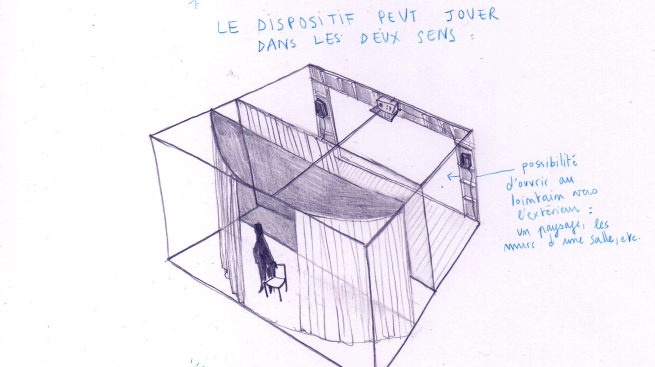 LE DISPOSITIF PEUT JOUER
DANS LES DEUX SENS :
possibilité
d'ouvrir au
lointain vers
l'extérieur :
un paysage, les
murs d'une salle, etc.